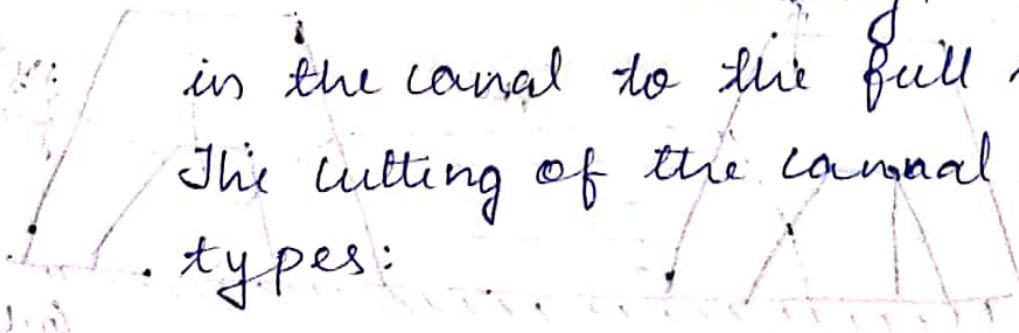 in the canal to the full
The cutting of the cannal
types: